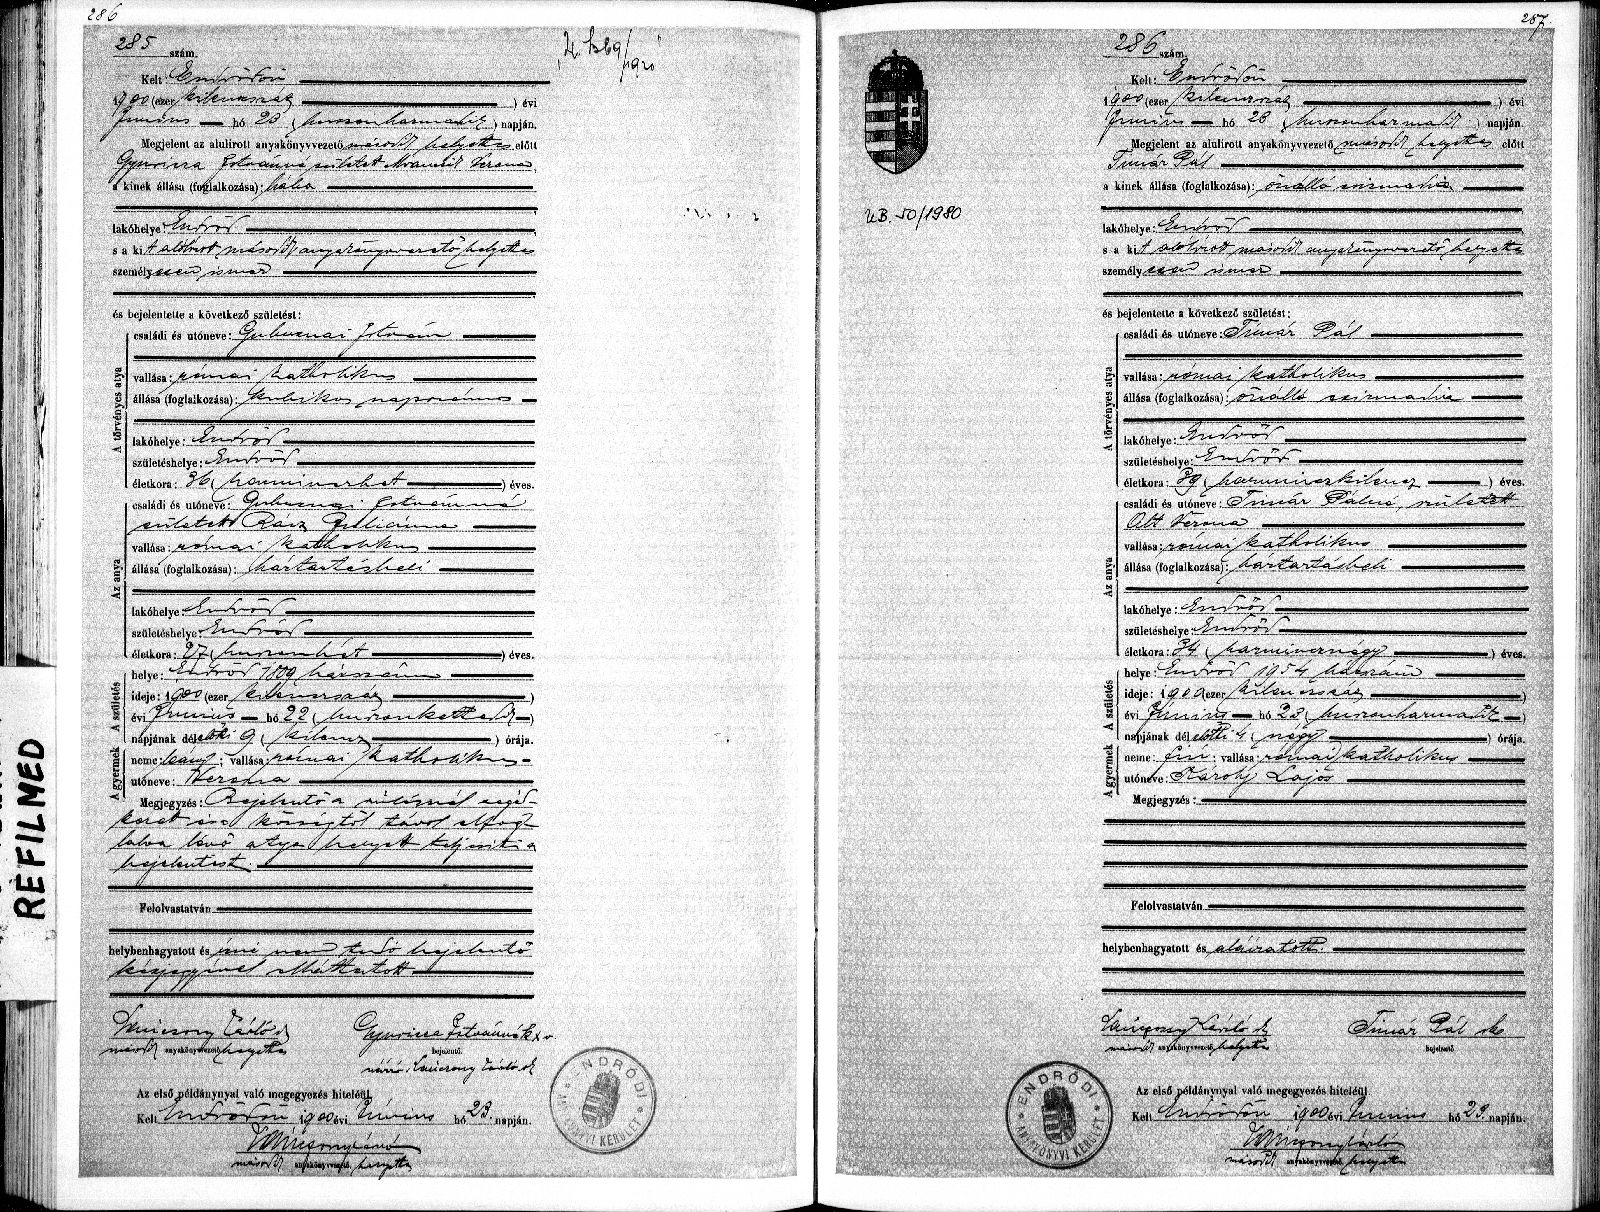 286
285 szám.
Kelt: Endrődön
1900 (ezer kilencszáz ) évi
Június hó 23 ( huszonharmadik ) napján.
Megjelent az alulirott anyakönyvvezető másodh helyettes előtt
Gyuricza Istvánné született Verona
a kinek állása (foglalkozása): bába
lakóhelye: Endrőd
s a kit alólirott másodh anyakönyvvezető helyettes
személyesen ismer
és bejelentette a következő születést:
A törvényes atya
családi és utóneve: Gubucznai István
vallása: római katholikus
állása (foglalkozása): kubikos napszámos
lakóhelye: Endrőd
születéshelye: Endrőd
életkora: 36 ( harminczhat ) éves.
Az anya
családi és utóneve: Gubucznai Istvánné
született Rácz Julianna
vallása: római katholikus
állása (foglalkozása): háztartásbeli
lakóhelye: Endrőd
születéshelye: Endrőd
életkora: 27 ( huszonhét ) éves.
A születés
helye: Endrőd 1809 házszám
ideje: 1900 (ezer kilencszáz )
évi Június hó 22 ( huszonkettedik )
napjának délelőtti 9 ( kilencz ) órája.
A gyermek
neme: leány; vallása: római katholikus
utóneve: Verona
Megjegyzés: Bejelentő a szülésnél segéd-
kezett és a községtől távol elfog-
lalva lévő atya helyett teljesíti a
bejelentést.
Felolvastatván
helybenhagyatott és írni nem tudó bejelentő
kézjegyével elláttatott
másodh anyakönyvvezető helyettes
Gyuricza Istvánné k x v
bejelentő.
Az első példánynyal való megegyezés hiteléül
Kelt Endrődön 1900 évi Június hó 23. napján.
másodh anyakönyvvezető helyettes
ENDRŐDI ANYAKÖNYVI KERÜLET
REFILMED
287.
UB. 50/1980
286 szám.
Kelt: Endrődön
1900 (ezer kilencszáz ) évi
Június hó 23 ( huszonharmadik ) napján.
Megjelent az alulirott anyakönyvvezető másodh helyettes előtt
Timár Pál
a kinek állása (foglalkozása): önálló csizmadia
lakóhelye: Endrőd
s a kit alólirott másodh anyakönyvvezető helyettes
személyesen ismer
és bejelentette a következő születést:
A törvényes atya
családi és utóneve: Timár Pál
vallása: római katholikus
állása (foglalkozása): önálló csizmadia
lakóhelye: Endrőd
születéshelye: Endrőd
életkora: 39 ( harminczkilencz ) éves.
Az anya
családi és utóneve: Timár Pálné, született
Alt Verona
vallása: római katholikus
állása (foglalkozása): háztartásbeli
lakóhelye: Endrőd
születéshelye: Endrőd
életkora: 34 ( harmincznégy ) éves.
A születés
helye: Endrőd 1954 házszám
ideje: 1900 ezer kilencszáz )
évi Június hó 23 ( huszonharmadik )
napjának délelőtti 4 ( négy ) órája.
A gyermek
neme: fiú; vallása: római katholikus
utóneve: Károly Lajos
Megjegyzés:
Felolvastatván
helybenhagyatott és aláiratott.
másodh anyakönyvvezető helyettes
Timár Pál
bejelentő
Az első példánynyal való megegyezés hiteléül
Kelt Endrődön 1900 évi Június hó 23. napján.
másodh anyakönyvvezető helyettes
ENDRŐDI ANYAKÖNYVI KERÜLET